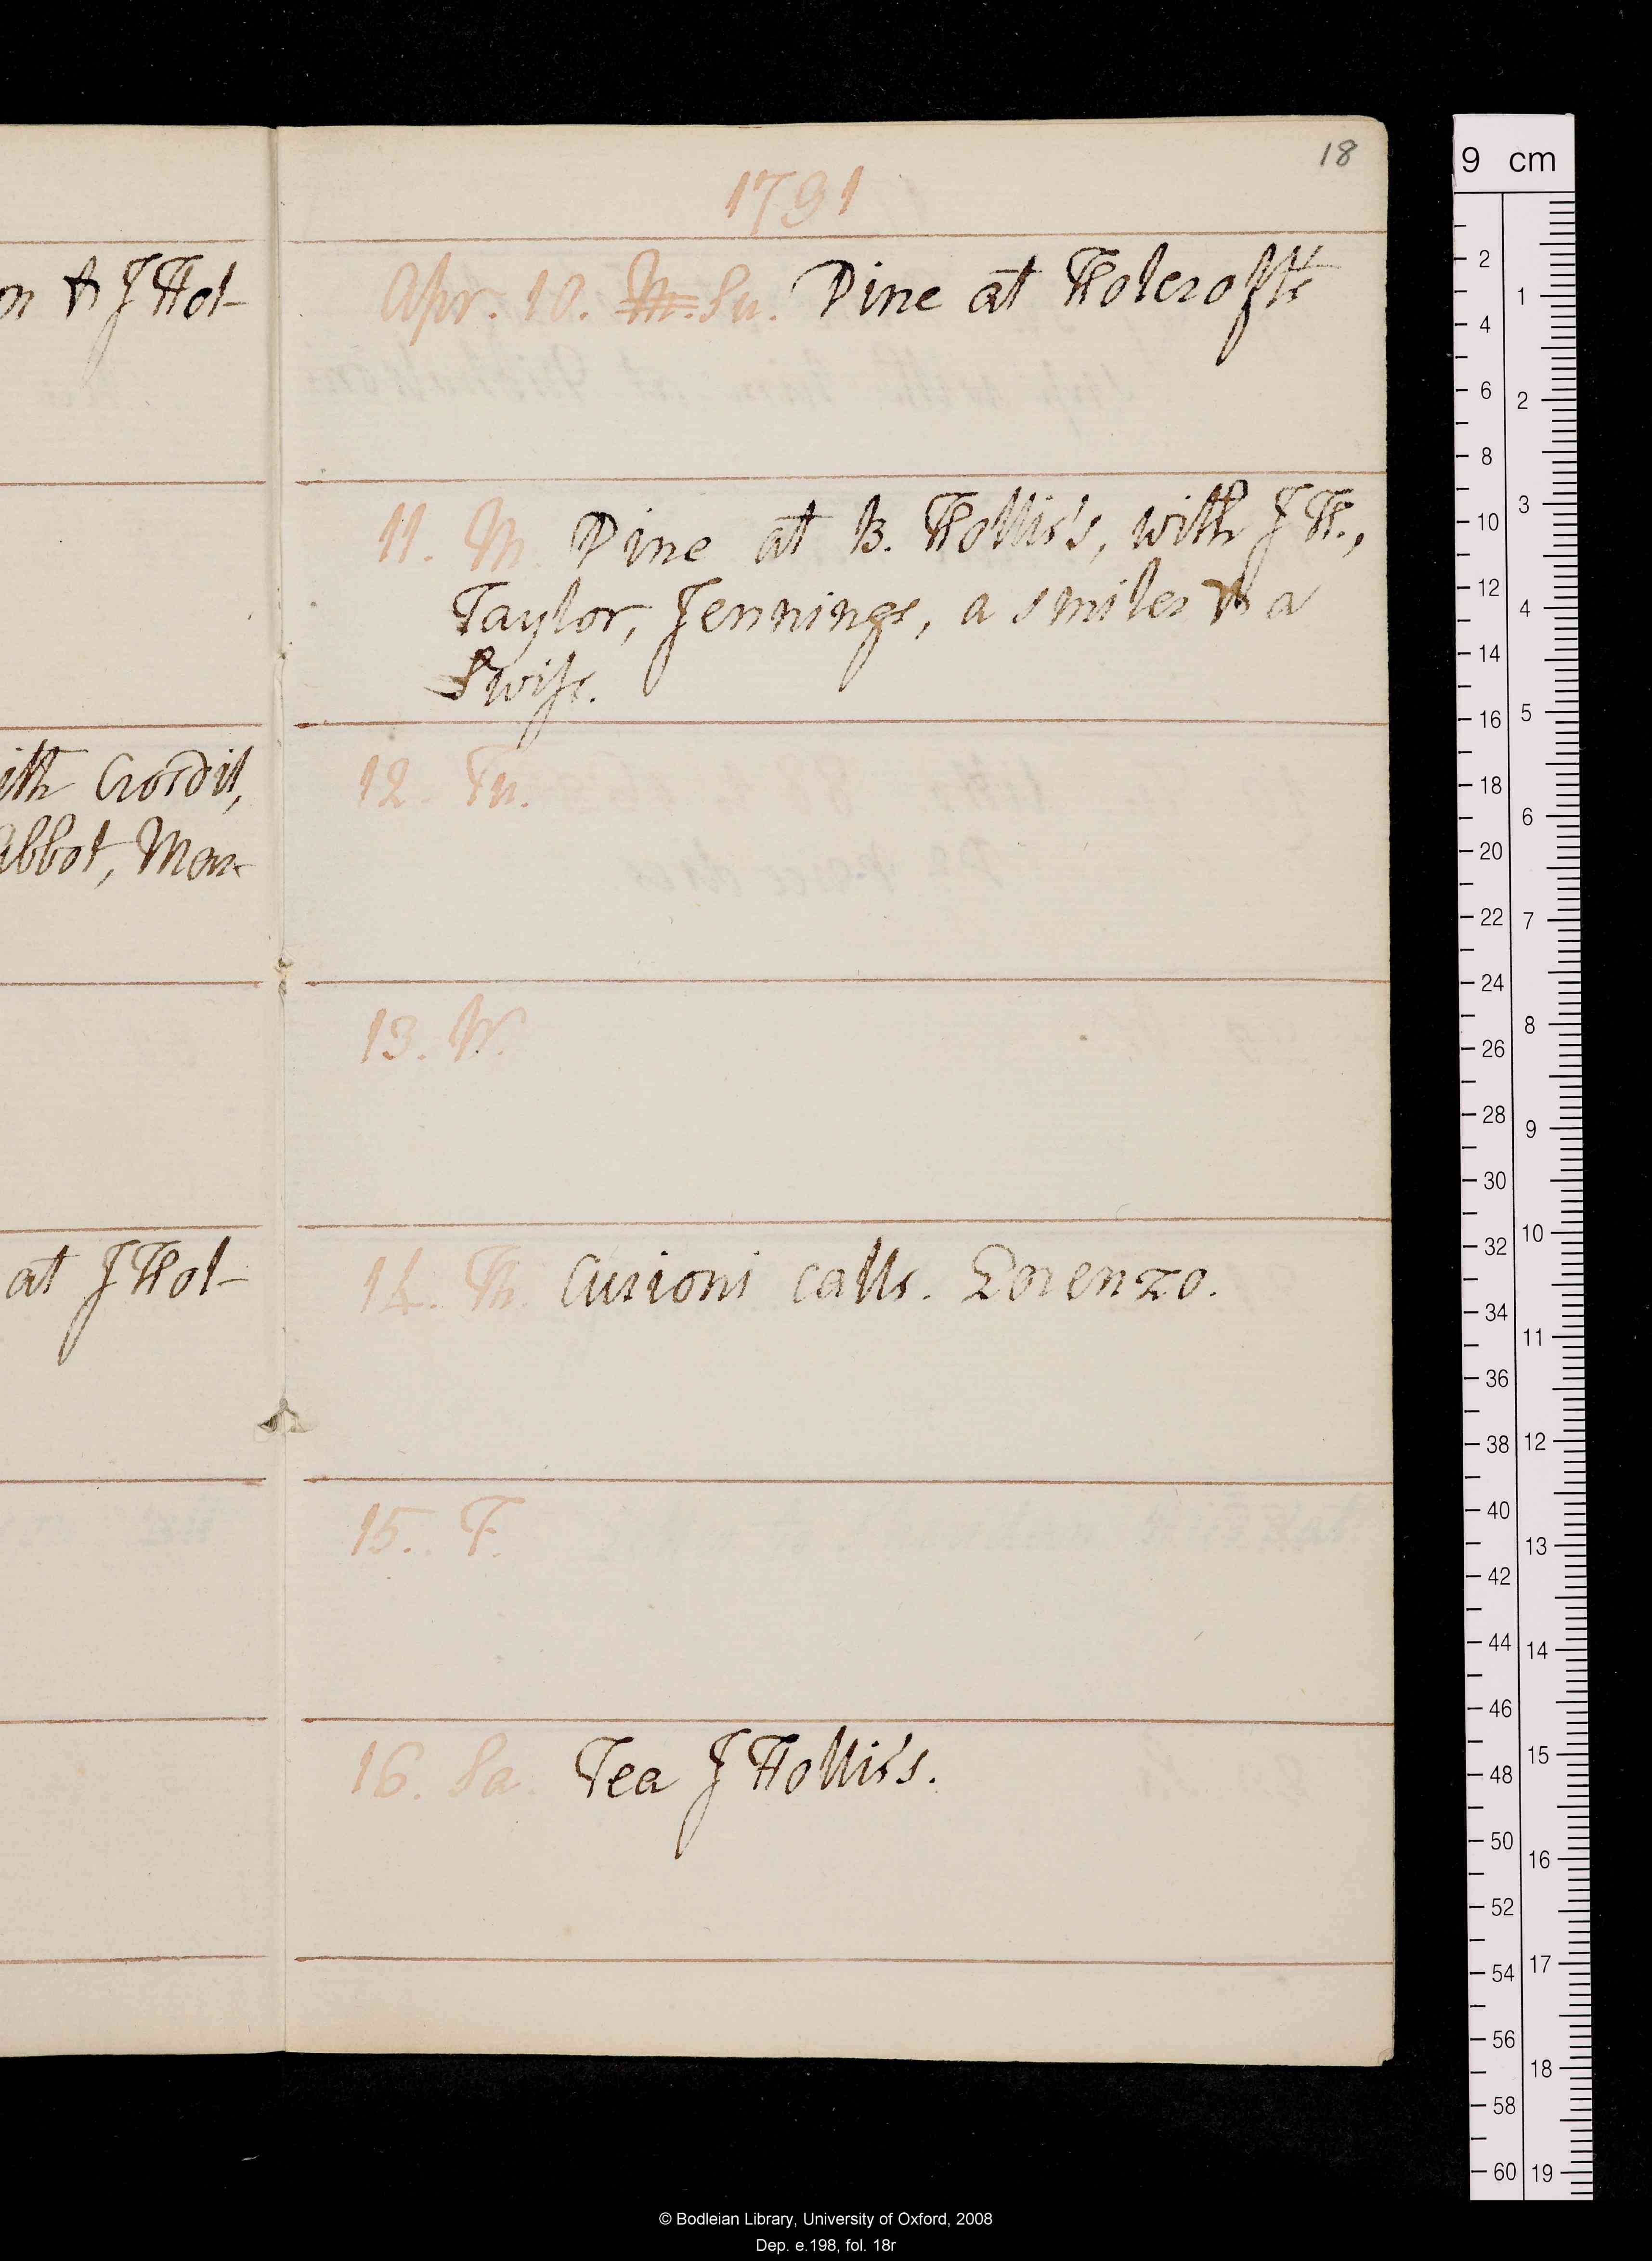 18
1791
on & J Hol-
Apr. 10. M. Su. Dine at Holcroft's
11. M. Dine at B. Hollis's, with J H.,
Taylor, Jennings, a smiler & a
Swiss.
ith Crosdil,
Abbot, Mon-
12. Tu.
13. W.
at J Hol-
14. Th. Curioni calls. Lorenzo.
15. F.
16. Sa. Tea J Hollis's.
9 cm
2
4
6
8
10
12
14
16
18
20
22
24
26
28
30
32
34
36
38
40
42
44
46
48
50
52
54
56
58
60
1
2
3
4
5
6
7
8
9
10
11
12
13
14
15
16
17
18
19
© Bodleian Library, University of Oxford, 2008
Dep. e.198, fol. 18r